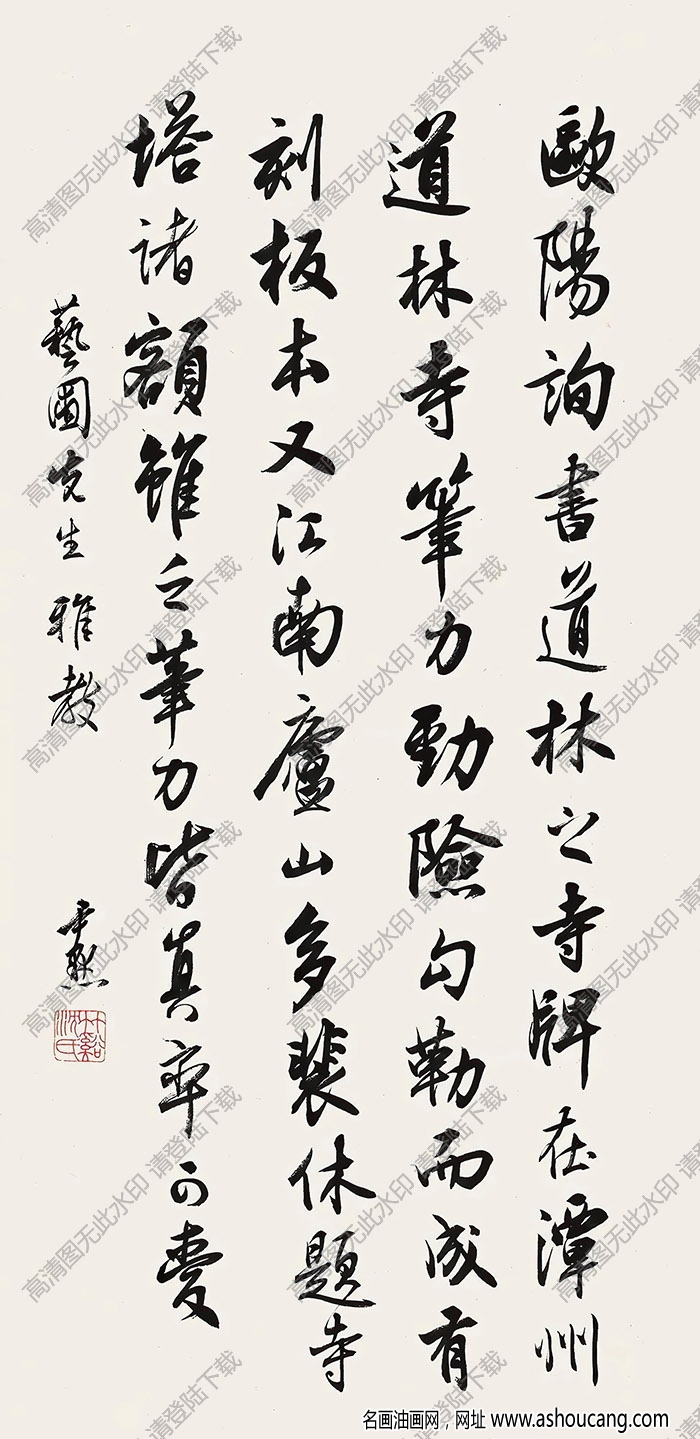 歐陽詢書道林之寺牌在潭州
道林寺筆力勁險勾勒而成有
刻板本又江南廬山多裴休題寺
塔諸額雖乏筆力皆真率可愛
藝圃先生雅教
尹默
竹谿沈氏
高清图无此水印 请登陆下载
名画油画网，网址 www.ashoucang.com